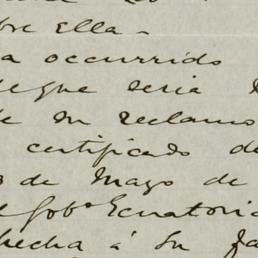 bre ella-
a occurrido
legue seria
de su reclamo
certificado de
de Mayo de
Gobº Ecuatoria
hecha á su fa